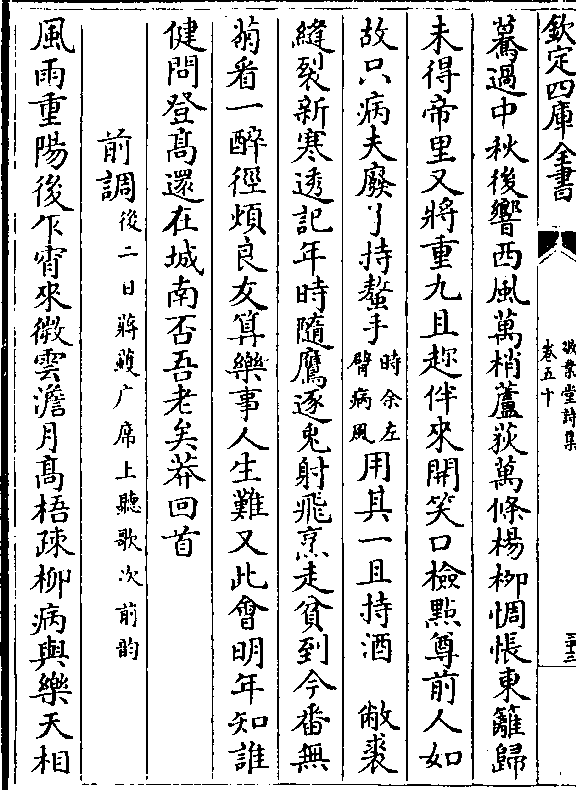 欽定四庫全書
敬業堂詩集
卷五十
三十三
驀過中秋後響西風萬梢蘆荻萬條楊栁惆悵東籬歸
未得帝里又將重九且趂伴來開笑口檢點尊前人如
故只病夫廢了持螯手時余左臂病風用其一且持酒　敝裘
縫裂新寒透記年時隨鷹逐兎射飛烹走貧到今番無
菊看一醉徑煩良友算樂事人生難又此會明年知誰
健問登髙還在城南否吾老矣莽回首
前調後二日蔣䕶广席上聽歌次前韵
風雨重陽後乍宵來微雲澹月髙梧疎柳病與樂天相